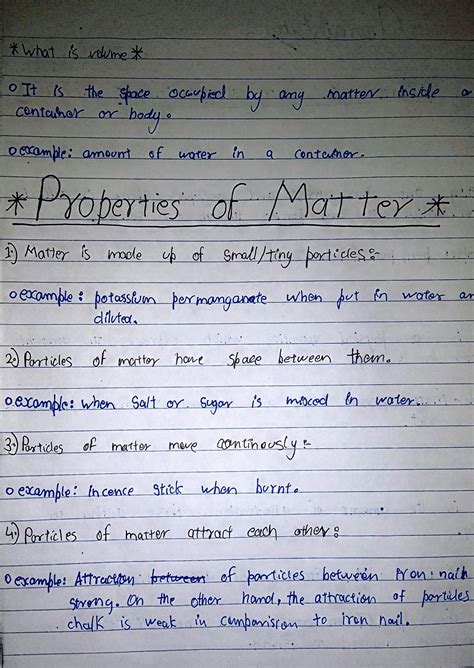 *What is volume*
o It is the space occupied by any matter inside a
container or body.
o example: amount of water in a container.
*Properties of Matter*
1) Matter is made up of small/tiny particles:-
o example: potassium permanganate when put in water an
diluted.
2) Particles of matter have space between them.
o example: when salt or sugar is mixced in water.
3) Particles of matter move continously:-
o example: Incence stick when burnt.
4) Particles of matter attract each other:
o example: Attraction between of particles between iron nail
strong. On the other hand, the attraction of particles
chalk is weak in comparision to iron nail.